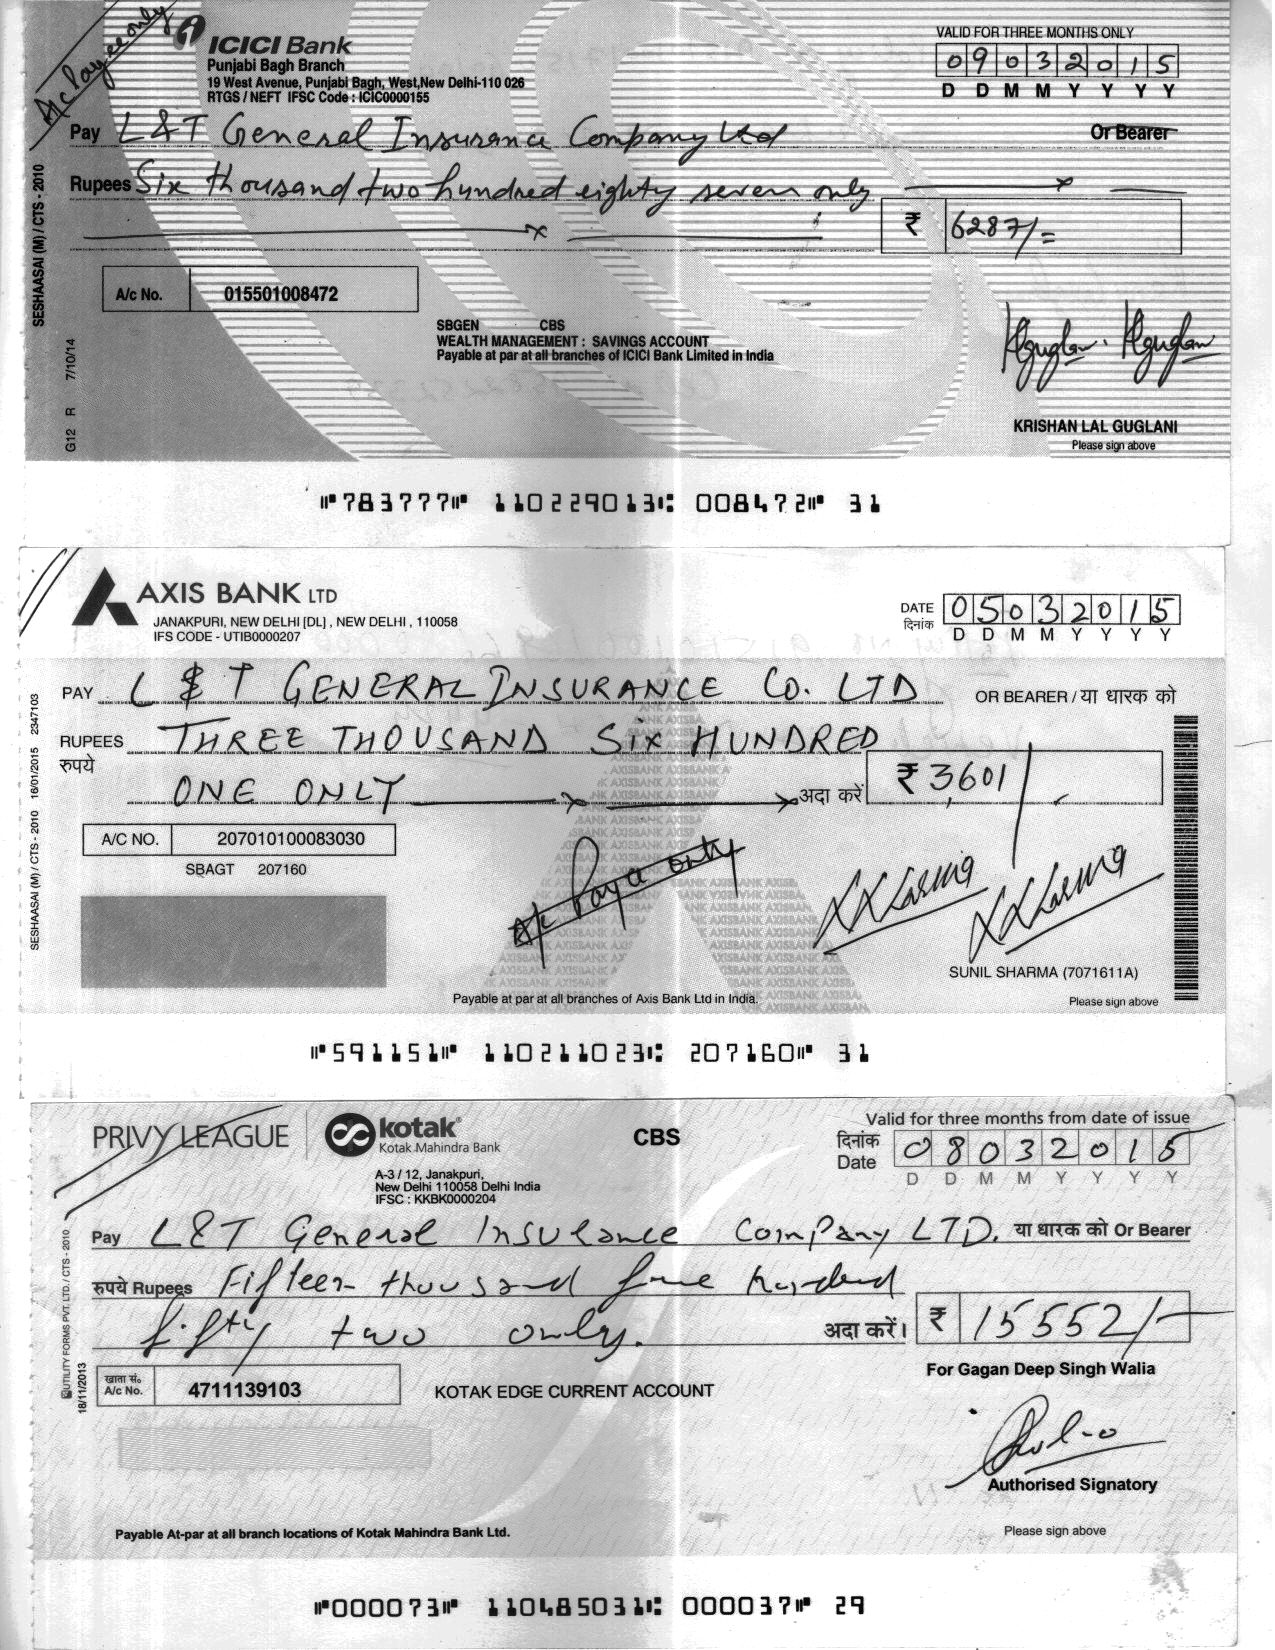 A/c Payee only
ICICI Bank
Punjabi Bagh Branch
19 West Avenue, Punjabi Bagh, West,New Delhi-110 026
RTGS / NEFT IFSC Code : ICIC0000155
VALID FOR THREE MONTHS ONLY
0 9 0 3 2 0 1 5
D D M M Y Y Y Y
Pay L&T General Insurance Company Ltd Or Bearer
Rupees Six thousand two hundred eighty seven only
₹ 6287/=
A/c No. 015501008472
SBGEN CBS
WEALTH MANAGEMENT : SAVINGS ACCOUNT
Payable at par at all branches of ICICI Bank Limited in India
Kguglani. Kguglani
KRISHAN LAL GUGLANI
Please sign above
SESHAASAI (M) / CTS - 2010
G12 R 7/10/14
⑈783777⑈ 110229013⑆ 008472⑈ 31
AXIS BANK LTD
JANAKPURI, NEW DELHI [DL] , NEW DELHI , 110058
IFS CODE - UTIB0000207
DATE 0 5 0 3 2 0 1 5
दिनांक D D M M Y Y Y Y
PAY L & T GENERAL INSURANCE CO. LTD OR BEARER / या धारक को
RUPEES THREE THOUSAND SIX HUNDRED
रुपये ONE ONLY अदा करें ₹ 3,601/
A/C NO. 207010100083030
SBAGT 207160
A/c Payee only
SUNIL SHARMA (7071611A)
Payable at par at all branches of Axis Bank Ltd in India.
Please sign above
SESHAASAI (M) / CTS - 2010 16/01/2015 2347103
⑈591151⑈ 110211023⑆ 207160⑈ 31
PRIVY LEAGUE
kotak
Kotak Mahindra Bank
CBS
A-3 / 12, Janakpuri,
New Delhi 110058 Delhi India
IFSC : KKBK0000204
Valid for three months from date of issue
दिनांक
Date 0 8 0 3 2 0 1 5
D D M M Y Y Y Y
Pay L&T General Insurance Company LTD. या धारक को Or Bearer
रुपये Rupees Fifteen thousand five hundred
fifty two only. अदा करें। ₹ 15552/-
For Gagan Deep Singh Walia
खाता सं.
A/c No. 4711139103
KOTAK EDGE CURRENT ACCOUNT
Authorised Signatory
Payable At-par at all branch locations of Kotak Mahindra Bank Ltd.
Please sign above
UTILITY FORMS PVT. LTD. / CTS - 2010
18/11/2013
⑈000073⑈ 110485031⑆ 000037⑈ 29